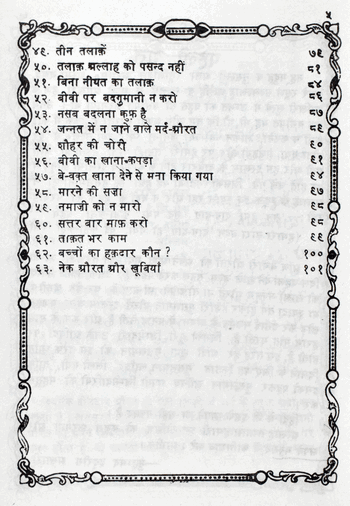 ५
४९. तीन तलाक़ें ७९
५०. तलाक़ अल्लाह को पसन्द नहीं ८१
५१. बिना नीयत का तलाक़ ८४
५२. बीवी पर बदगुमानी न करो ८६
५३. नसब बदलना कुफ़्र है ८७
५४. जन्नत में न जाने वाले मर्द-औरत ८९
५५. शौहर की चोरी ९०
५६. बीवी का खाना-कपड़ा ९१
५७. बे-वक़्त खाना देने से मना किया गया ९४
५८. मारने की सज़ा ९७
५९. नमाज़ी को न मारो ९८
६०. सत्तर बार माफ़ करो ९८
६१. ताक़त भर काम ९९
६२. बच्चों का हक़दार कौन ? १००
६३. नेक औरत और ख़ूबियां १०१